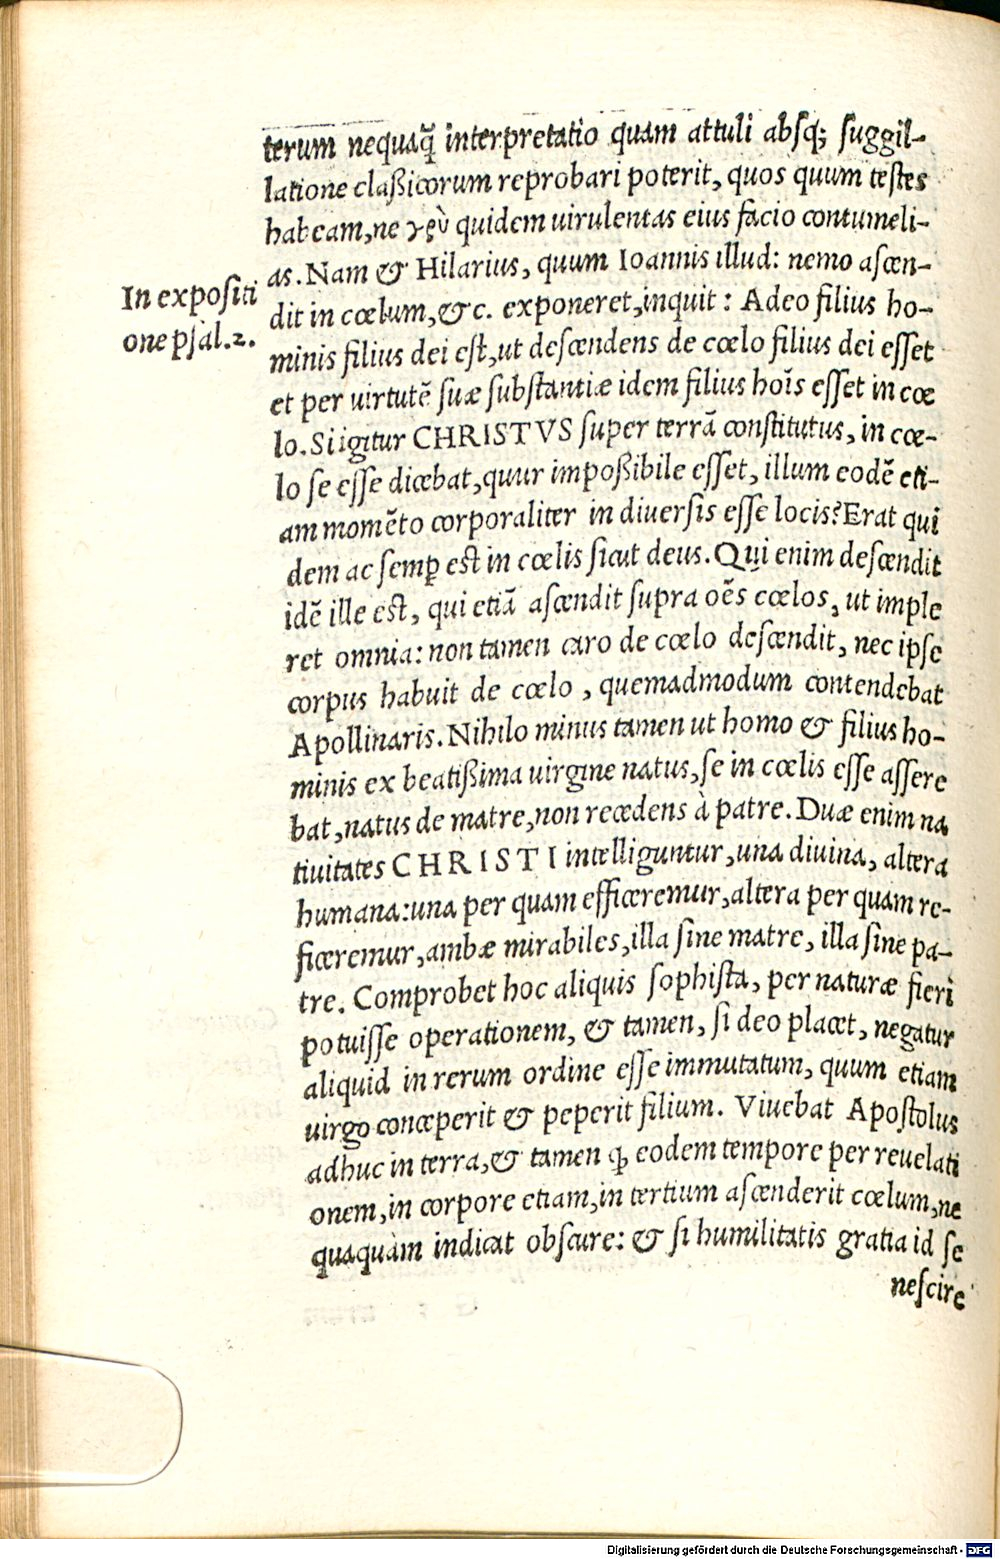 terum nequaq̃ interpretatio quam attuli absq; suggil-
latione claßicorum reprobari poterit, quos quum testes
habeam, ne γρὺ quidem uirulentas eius facio contumeli-
as. Nam & Hilarius, quum Ioannis illud: nemo ascen-
In expositi
one psal.2.
dit in cœlum, &c. exponeret, inquit: Adeo filius ho-
minis filius dei est, ut descendens de cœlo filius dei esset
et per uirtutẽ suæ substantiæ idem filius hoĩs esset in cœ
lo. Si igitur CHRISTVS super terrã constitutus, in cœ-
lo se esse dicebat, quur impoßibile esset, illum eodẽ eti-
am momẽto corporaliter in diuersis esse locis? Erat qui
dem ac semꝑ est in cœlis sicut deus. Qui enim descendit
idẽ ille est, qui etiã ascendit supra oẽs cœlos, ut imple
ret omnia: non tamen caro de cœlo descendit, nec ipse
corpus habuit de cœlo, quemadmodum contendebat
Apollinaris. Nihilo minus tamen ut homo & filius ho-
minis ex beatißima uirgine natus, se in cœlis esse assere
bat, natus de matre, non recedens à patre. Duæ enim na
tiuitates CHRISTI intelliguntur, una diuina, altera
humana: una per quam efficeremur, altera per quam re-
ficeremur, ambæ mirabiles, illa sine matre, illa sine pa-
tre. Comprobet hoc aliquis sophista, per naturæ fieri
potuisse operationem, & tamen, si deo placet, negatur
aliquid in rerum ordine esse immutatum, quum etiam
uirgo conceperit & peperit filium. Viuebat Apostolus
adhuc in terra, & tamen ꝙ eodem tempore per reuelati
onem, in corpore etiam, in tertium ascenderit cœlum, ne
quaquàm indicat obscure: & si humilitatis gratia id se
nescire
Digitalisierung gefördert durch die Deutsche Forschungsgemeinschaft - DFG